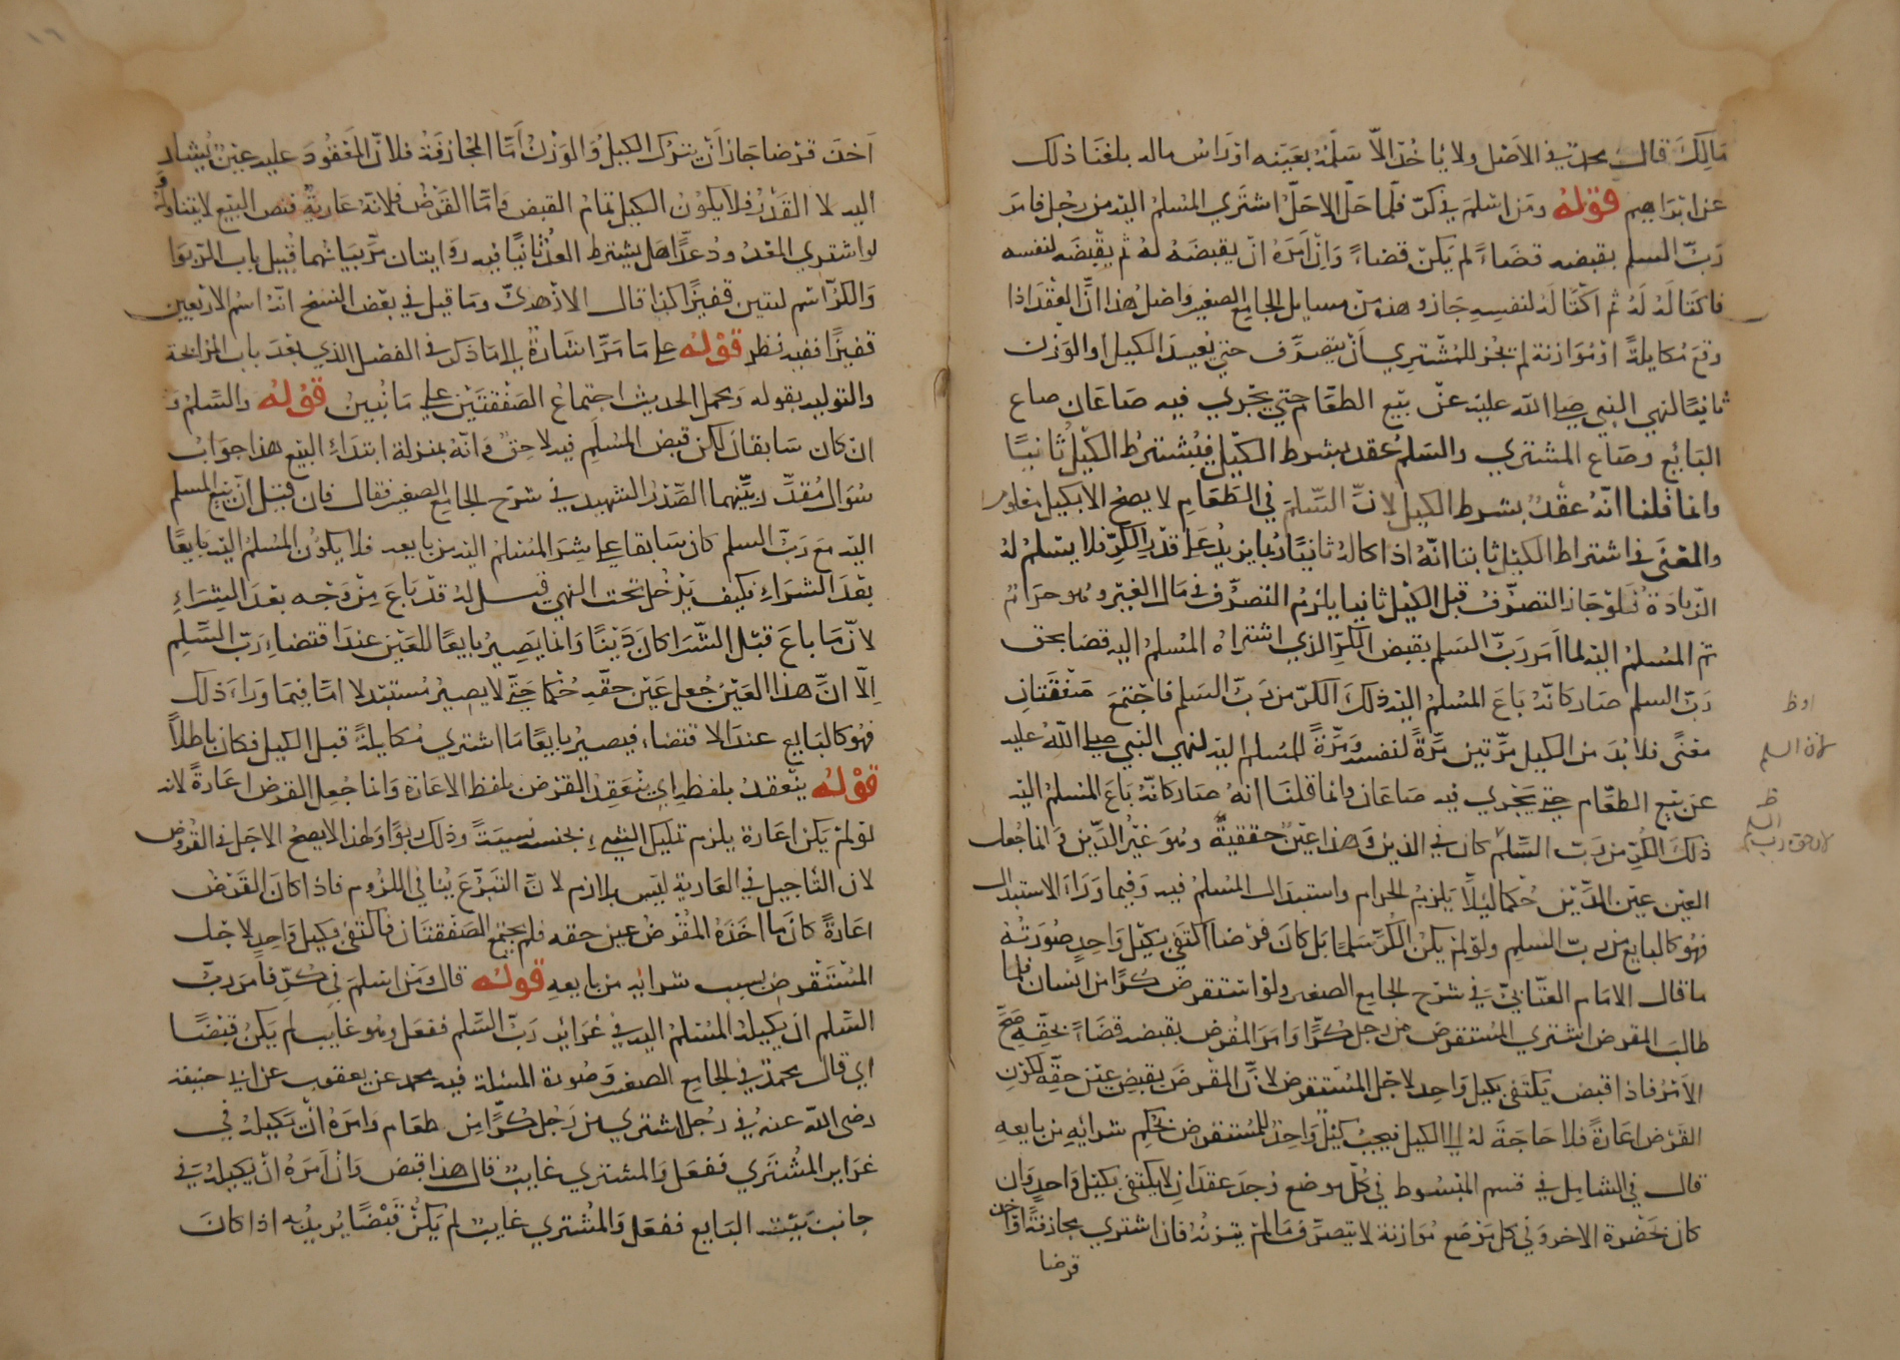 مَالِكَ قال محمد في الأصل ولا يأخذ إلا سَلَمَهُ بعينه أو رأس ماله بلغنا ذلك
عن ابراهيم قوله ومن اسلم في كرّ فلمّا حلّ الاجلُ اشتري المسلم اليه من رجل فامر
ربّ السلم بقبضه قضاءً لم يكن قضاءً وان امره ان يقبضه له ثم يقبضه لنفسه
فاكتاله له ثم اكتاله لنفسه جاز وهذه من مسايل الجامع الصغير واصل هذا انّ العقد اذا
وقع مكايلةً او موازنة لم يجز للمشتري أن يتصرّف حتي يعيد الكيل أو الوزن
ثانيًا لنهي النبي صلي الله عليه عن بيع الطعام حتي يجري فيه صاعان صاع
البائع وصاع المشتري والسلم عقد بشرط الكيل فيُشترط الكيل ثانيًا
وانما قلنا انّه عقدٌ بشرط الكيل لانّ السّلَمَ في الطعام لا يصح الا بكيل معلوم
والمعني في اشتراط الكيل ثانيا انّهُ اذا كاله ثانيًا ربما يزيد علي قدر الكرّ فلا يسلم له
الزيادة فلو جاز التصرّف قبل الكيل ثانيا يلزم التصرّف في مال الغير وهو حرام
ثم المسلم اليه لما امر ربّ السلم بقبض الكرّ الذي اشتراه المسلم اليه قضا بحق
ربّ السلم صار كانّه باع المسلم اليه ذلك الكرّ من ربّ السلم فاجتمع صفقتان
معنًى فلا بدّ من الكيل مرّتين مرّةً لنفسه ومرّةً للمسلم اليه لنهي النبي صلي الله عليه
عن بيع الطعام حتي يجري فيه صاعان وانما قلنا انه صار كانّه باع المسلم اليه
ذلك الكرّ من ربّ السلم كان في الدين وهذا عينٌ حقيقةً وهو غيرُ الدّين وانما جُعل
العين عين الدّين حكما ليلّا يلزم الحرام واستبدال المسلم فيه وفيما وراء الاستبدال
فهو كالبايع من ربّ السلم ولو لم يكن الكرّ سلمًا بل كان قرضا اكتفي بكيل واحدٍ صورته
ما قال الامام العتّابيّ في شرح الجامع الصغير ولو استقرض كرًّا من انسان فلما
طالب المقرض اشتري المستقرض من رجل كرًّا وامر المقرض بقبضه قضاءً بحقّه صحّ
الأمر فاذا قبض يكتفي بكيل واحد لاجل المستقرض لانّ المقرض يقبض عين حقّه لكون
القرض اعارةً فلا حاجة له الي الكيل فيجب كيلٌ واحدٌ للمستقرض بحكم شرائه من بايعه
قال في الشامل في قسم المبسوط في كل موضع وجد عقدان لا يكتفي بكيل واحد وان
كان بحضرة الاخر وفي كل موضع موازنة لا يتصرّف ما لم يتزنه فان اشتري مجازفةً او اخذ
قرضا
اخذ قرضا جاز أن يترك الكيل والوزن أمّا المجازفة فلانّ المعقود عليه عينٌ يشار
اليه لا القدر فلا يكون الكيل تمام القبض وامّا القرض فلانّه عاريةٌ فنص البيع لا يتناوله و
لو اشتري المعدود عدّا هل يشترط العدّ ثانيًا فيه روايتان مرّ بيانهما قبيل باب الربوا
والكرّ اسم لستين قفيزًا كذا قال الازهريّ وما قيل في بعض النسخ انّه اسم لاربعين
قفيزًا ففيه نظر قوله علي ما مرّ اشارة الي ما ذكر في الفصل الذي بعد باب المرابحة
والتوليه بقوله ومحمل الحديث اجتماع الصفقتين علي ما نبين قوله والسلم و
ان كان سابقا لكن قبض المسلم فيه لاحقٌ وانّه بمنزلة ابتداء البيع هذا جواب
سؤال مقدّر بيّنهما الصّدر الشهيد في شرح الجامع الصغير فقال فان قيل انّ بيع المسلم
اليه مع ربّ السلم كان سابقا علي شرا المسلم اليه من بايعه فلا يكون المسلم اليه بايعًا
بعد الشراء فكيف يدخل تحت النهي قيل له قد باع من وجه بعد الشراء
لانّ ما باع قبل الشرا كان دينًا وانما يصير بايعًا للعين عند اقتضاء ربّ السّلم
الّا انّ هذا العين جُعل عين حقّه حكما حتّي لا يصير مستبدلا امّا فيما وراء ذلك
فهو كالبايع عند الاقتضاء فيصير بايعًا ما اشتري مكايلةً قبل الكيل فكان باطلاً
قوله ينعقد بلفظه اي ينعقد القرض بلفظ الاعارة وانما جُعل القرض اعارةً لانه
لو لم يكن اعارة يلزم تمليك الشيء بجنسه نسيئةً وذلك ربوًا ولهذا لا يصح الاجل في القروض
لان التاجيل في العارية ليس بلازم لانّ التبرّع ينافي اللزوم فاذا كان القرض
اعارةً كان ما اخذه المقرض عين حقه فلم يجتمع الصفقتان فاكتفي بكيل واحدٍ لاجل
المستقرض بسبب شرائه من بايعه قوله قال ومن اسلم في كرّ فامر ربّ
السّلم ان يكيله المسلم اليه في غراير ربّ السّلم ففعل وهو غايب لم يكن قبضًا
اي قال محمدٌ في الجامع الصغير وصورة المسئلة فيه محمد عن يعقوب عن ابي حنيفة
رضي الله عنه في رجل اشتري من رجل كرًّا من طعام وامره ان يكيله في
غراير المشتري ففعل والمشتري غايبٌ قال هذا قبض وان امره ان يكيله في
جانب بيت البايع ففعل والمشتري غايب لم يكن قبضًا يريد به اذا كان